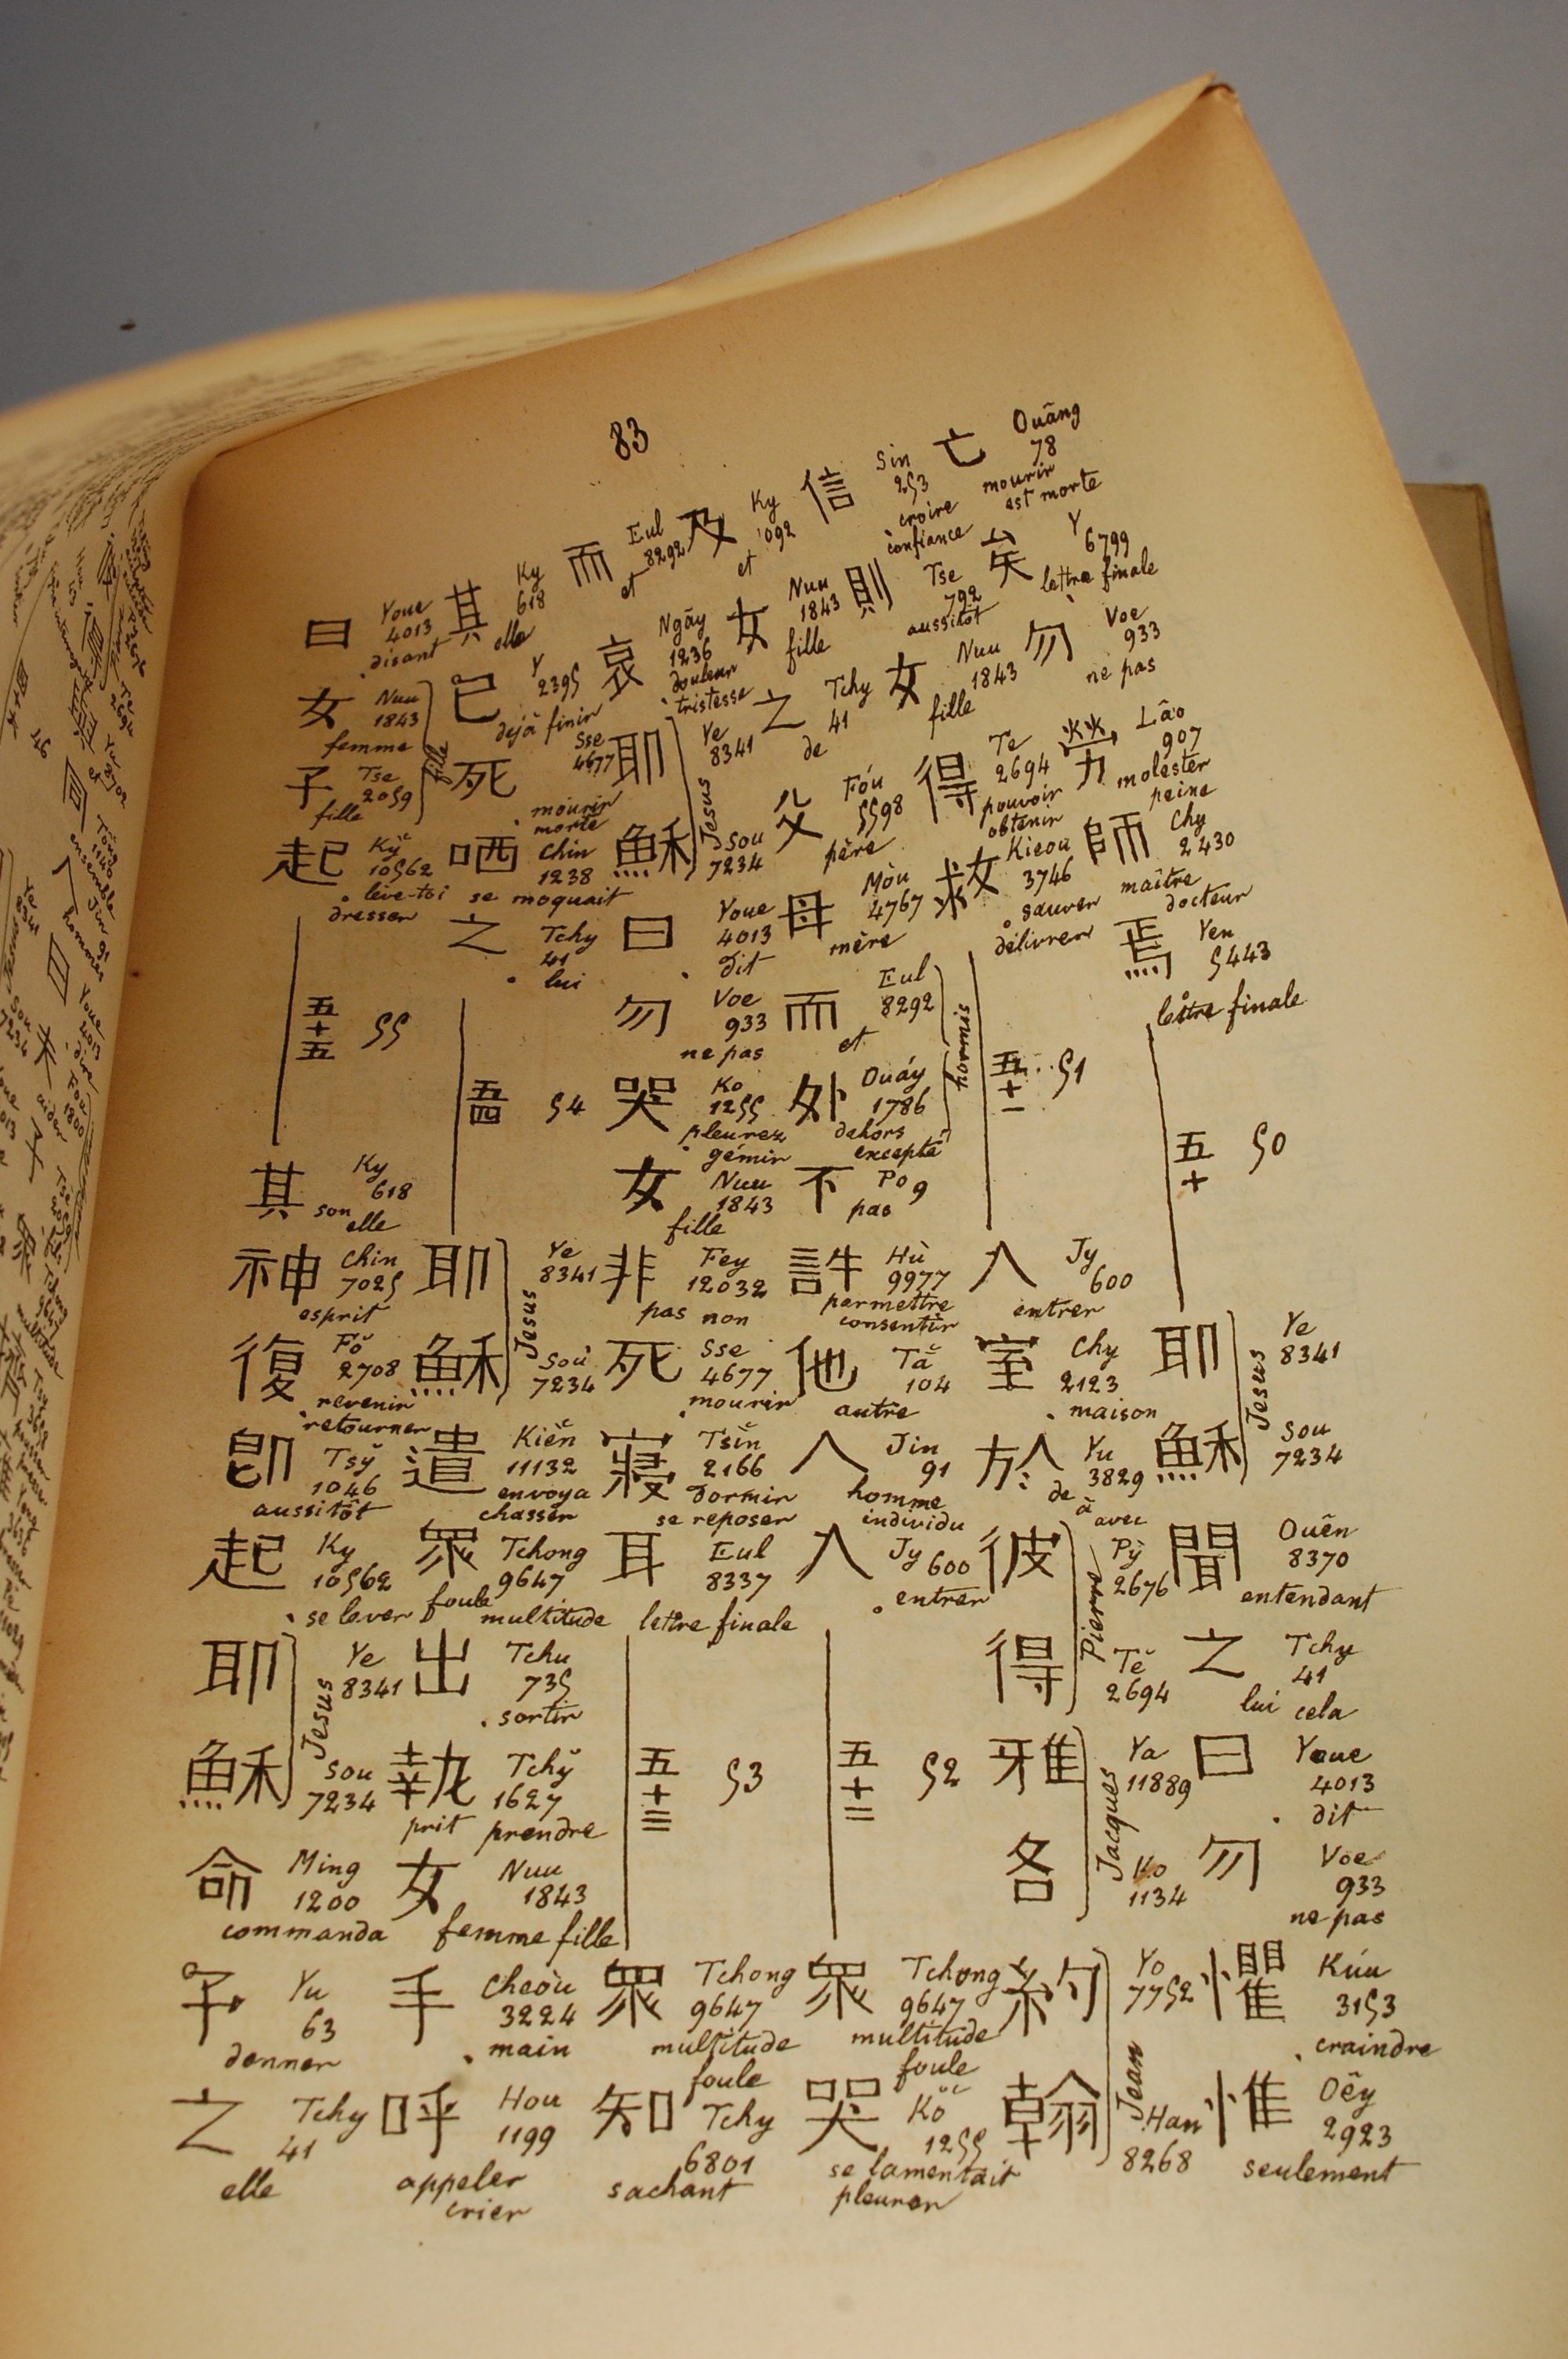 83
亡 Ouâng 78 mourir est morte
矣 Y 6799 lettre finale
勿 Voe 933 ne pas
勞 Lâo 907 molester peine
師 Chy 2430 maître docteur
焉 Yen 5443 lettre finale
五十 50
耶 Ye 8341
穌 Sou 7234
Jesus
聞 Ouên 8370 entendant
之 Tchy 41 lui cela
曰 Youe 4013 dit
勿 Voe 933 ne pas
懼 Kúu 3153 craindre
惟 Oêy 2923 seulement
信 Sin 253 croire confiance
則 Tse 792 aussitôt
女 Nuu 1843 fille
得 Te 2694 pouvoir obtenir
救 Kieou 3746 sauver délivrer
五十一 51
入 Jy 600 entrer
室 Chy 2123 maison
於 Yu 3829 de à avec
彼 Pỳ 2676
得 Tĕ 2694
Pierre
雅 Ya 11889
各 Ko 1134
Jacques
約 Yo 7752
翰 Han 8268
Jean
及 Ky 1092 et
女 Nuu 1843 fille
之 Tchy 41 de
父 Fóu 5598 père
母 Mòu 4767 mère
而 Eul 8292 et
外 Ouáy 1786 dehors excepté
hormis
不 Po 9 pas
許 Hù 9977 permettre consentir
他 Tă 104 autre
人 Jin 91 homme individu
入 Jy 600 entrer
五十二 52
眾 Tchong 9647 multitude foule
哭 Kŏ 1255 se lamentait pleurer
而 Eul 8292 et
哀 Ngāy 1236 douleur tristesse
耶 Ye 8341
穌 Sou 7234
Jesus
曰 Youe 4013 dit
勿 Voe 933 ne pas
哭 Ko 1255 pleurez gémir
女 Nuu 1843 fille
非 Fey 12032 pas non
死 Sse 4677 mourir
寢 Tsĭn 2166 dormir se reposer
耳 Eul 8337 lettre finale
五十三 53
眾 Tchong 9647 multitude foule
知 Tchy 6801 sachant
其 Ky 618 elle
已 Y 2395 dejà finir
死 Sse 4677 mourir morte
哂 Chin 1238 se moquait
之 Tchy 41 lui
五十四 54
耶 Ye 8341
穌 Soù 7234
Jesus
遣 Kiĕn 11132 envoya chasser
眾 Tchong 9647 foule multitude
出 Tchu 735 sortir
執 Tchў 1627 prit prendre
女 Nuu 1843 femme fille
手 Cheòu 3224 main
呼 Hou 1199 appeler crier
曰 Youe 4013 disant
女 Nuu 1843 femme
子 Tse 2059 fille
fille
起 Kў 10562 lève-toi dresser
五十五 55
其 Ky 618 son elle
神 Chin 7025 esprit
復 Fŏ 2708 revenir retourner
即 Tsў 1046 aussitôt
起 Ky 10562 se lever
耶 Ye 8341
穌 Sou 7234
Jesus
命 Ming 1200 commanda
予 Yu 63 donner
之 Tchy 41 elle